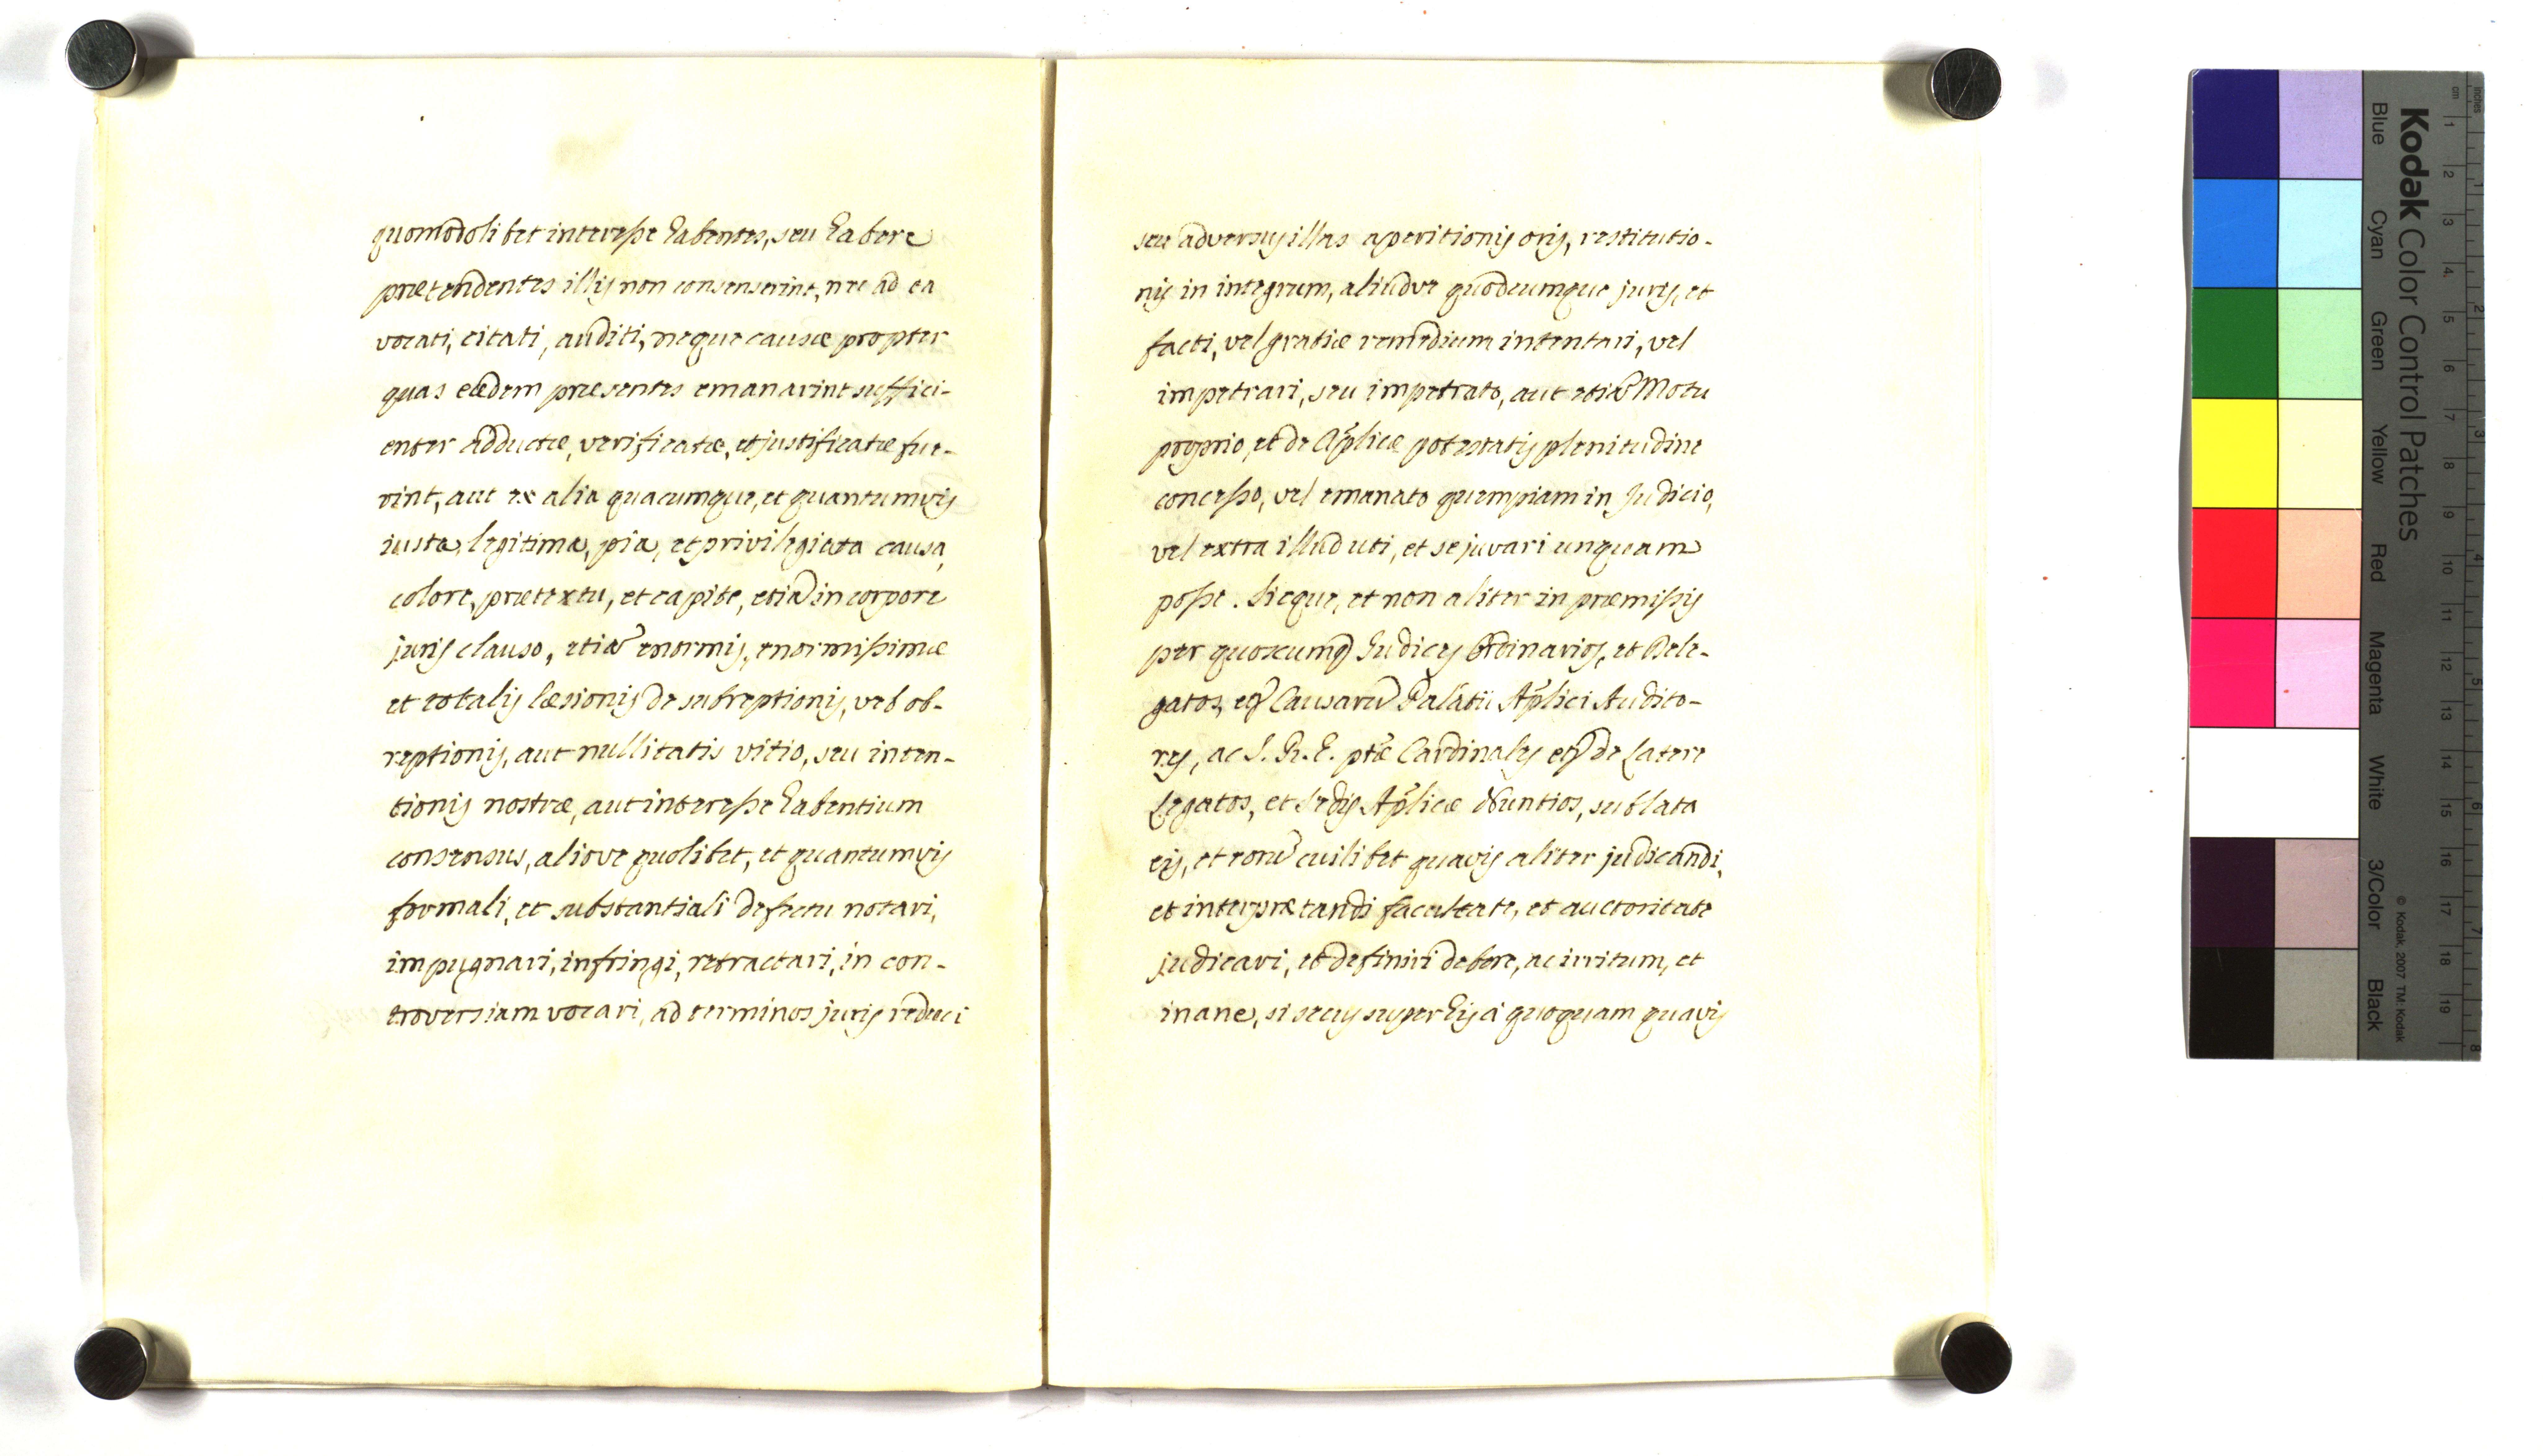 quomodolibet interesse habentes, seu habere
prætendentes illis non consenserint, nec ad ea
vocati, citati, auditi, neque causæ propter
quas eædem præsentes emanarint suffici-
enter adductæ, verificatæ, et justificatæ fue-
rint, aut ex alia quacumque, et quantumvis
iusta, legitima, pia, et privilegiata causa,
colore, prætextu, et capite, etiã in corpore
juris clauso, etiã enormis, enormissimæ
et totalis læsionis de subreptionis, vel ob-
reptionis, aut nullitatis vitio, seu inten-
tionis nostræ, aut interesse habentium
consensus, aliove quolibet, et quantumvis
formali, et substantiali defectu notari,
impugnari, infringi, retractari, in con-
troversiam vocari, ad terminos juris reduci
seu adversus illas aperitionis oris, restitutio-
nis in integrum, aliudve quodcumque juris, et
facti, vel gratiæ remedium intentari, vel
impetrari, seu impetrato, aut etiã Motu
proprio, et de Aplicæ potestatis plenitudine
concesso, vel emanato quempiam in Judicio,
vel extra illud uti, et se juvari unquam
posse. Sicque, et non aliter in præmissis
per quoscumq Judices Ordinarios, et Dele-
gatos, etq Causarũ Palatii Aplici Audito-
res, ac S. R. E. ptæ Cardinales etq de Latere
Legatos, et Sedis Aplicæ Nuntios, sublata
eis, et eorũ cuilibet quavis aliter judicandi,
et interprætandi facultate, et auctoritate
judicari, et definiri debere, ac irritum, et
inane, si secus super his à quoquam quavis
Kodak Color Control Patches
Blue
Cyan
Green
Yellow
Red
Magenta
White
3/Color
Black
© Kodak, 2007 TM: Kodak
inches
cm
1
2
3
4
5
6
7
8
9
10
11
12
13
14
15
16
17
18
19
1
2
3
4
5
6
7
8